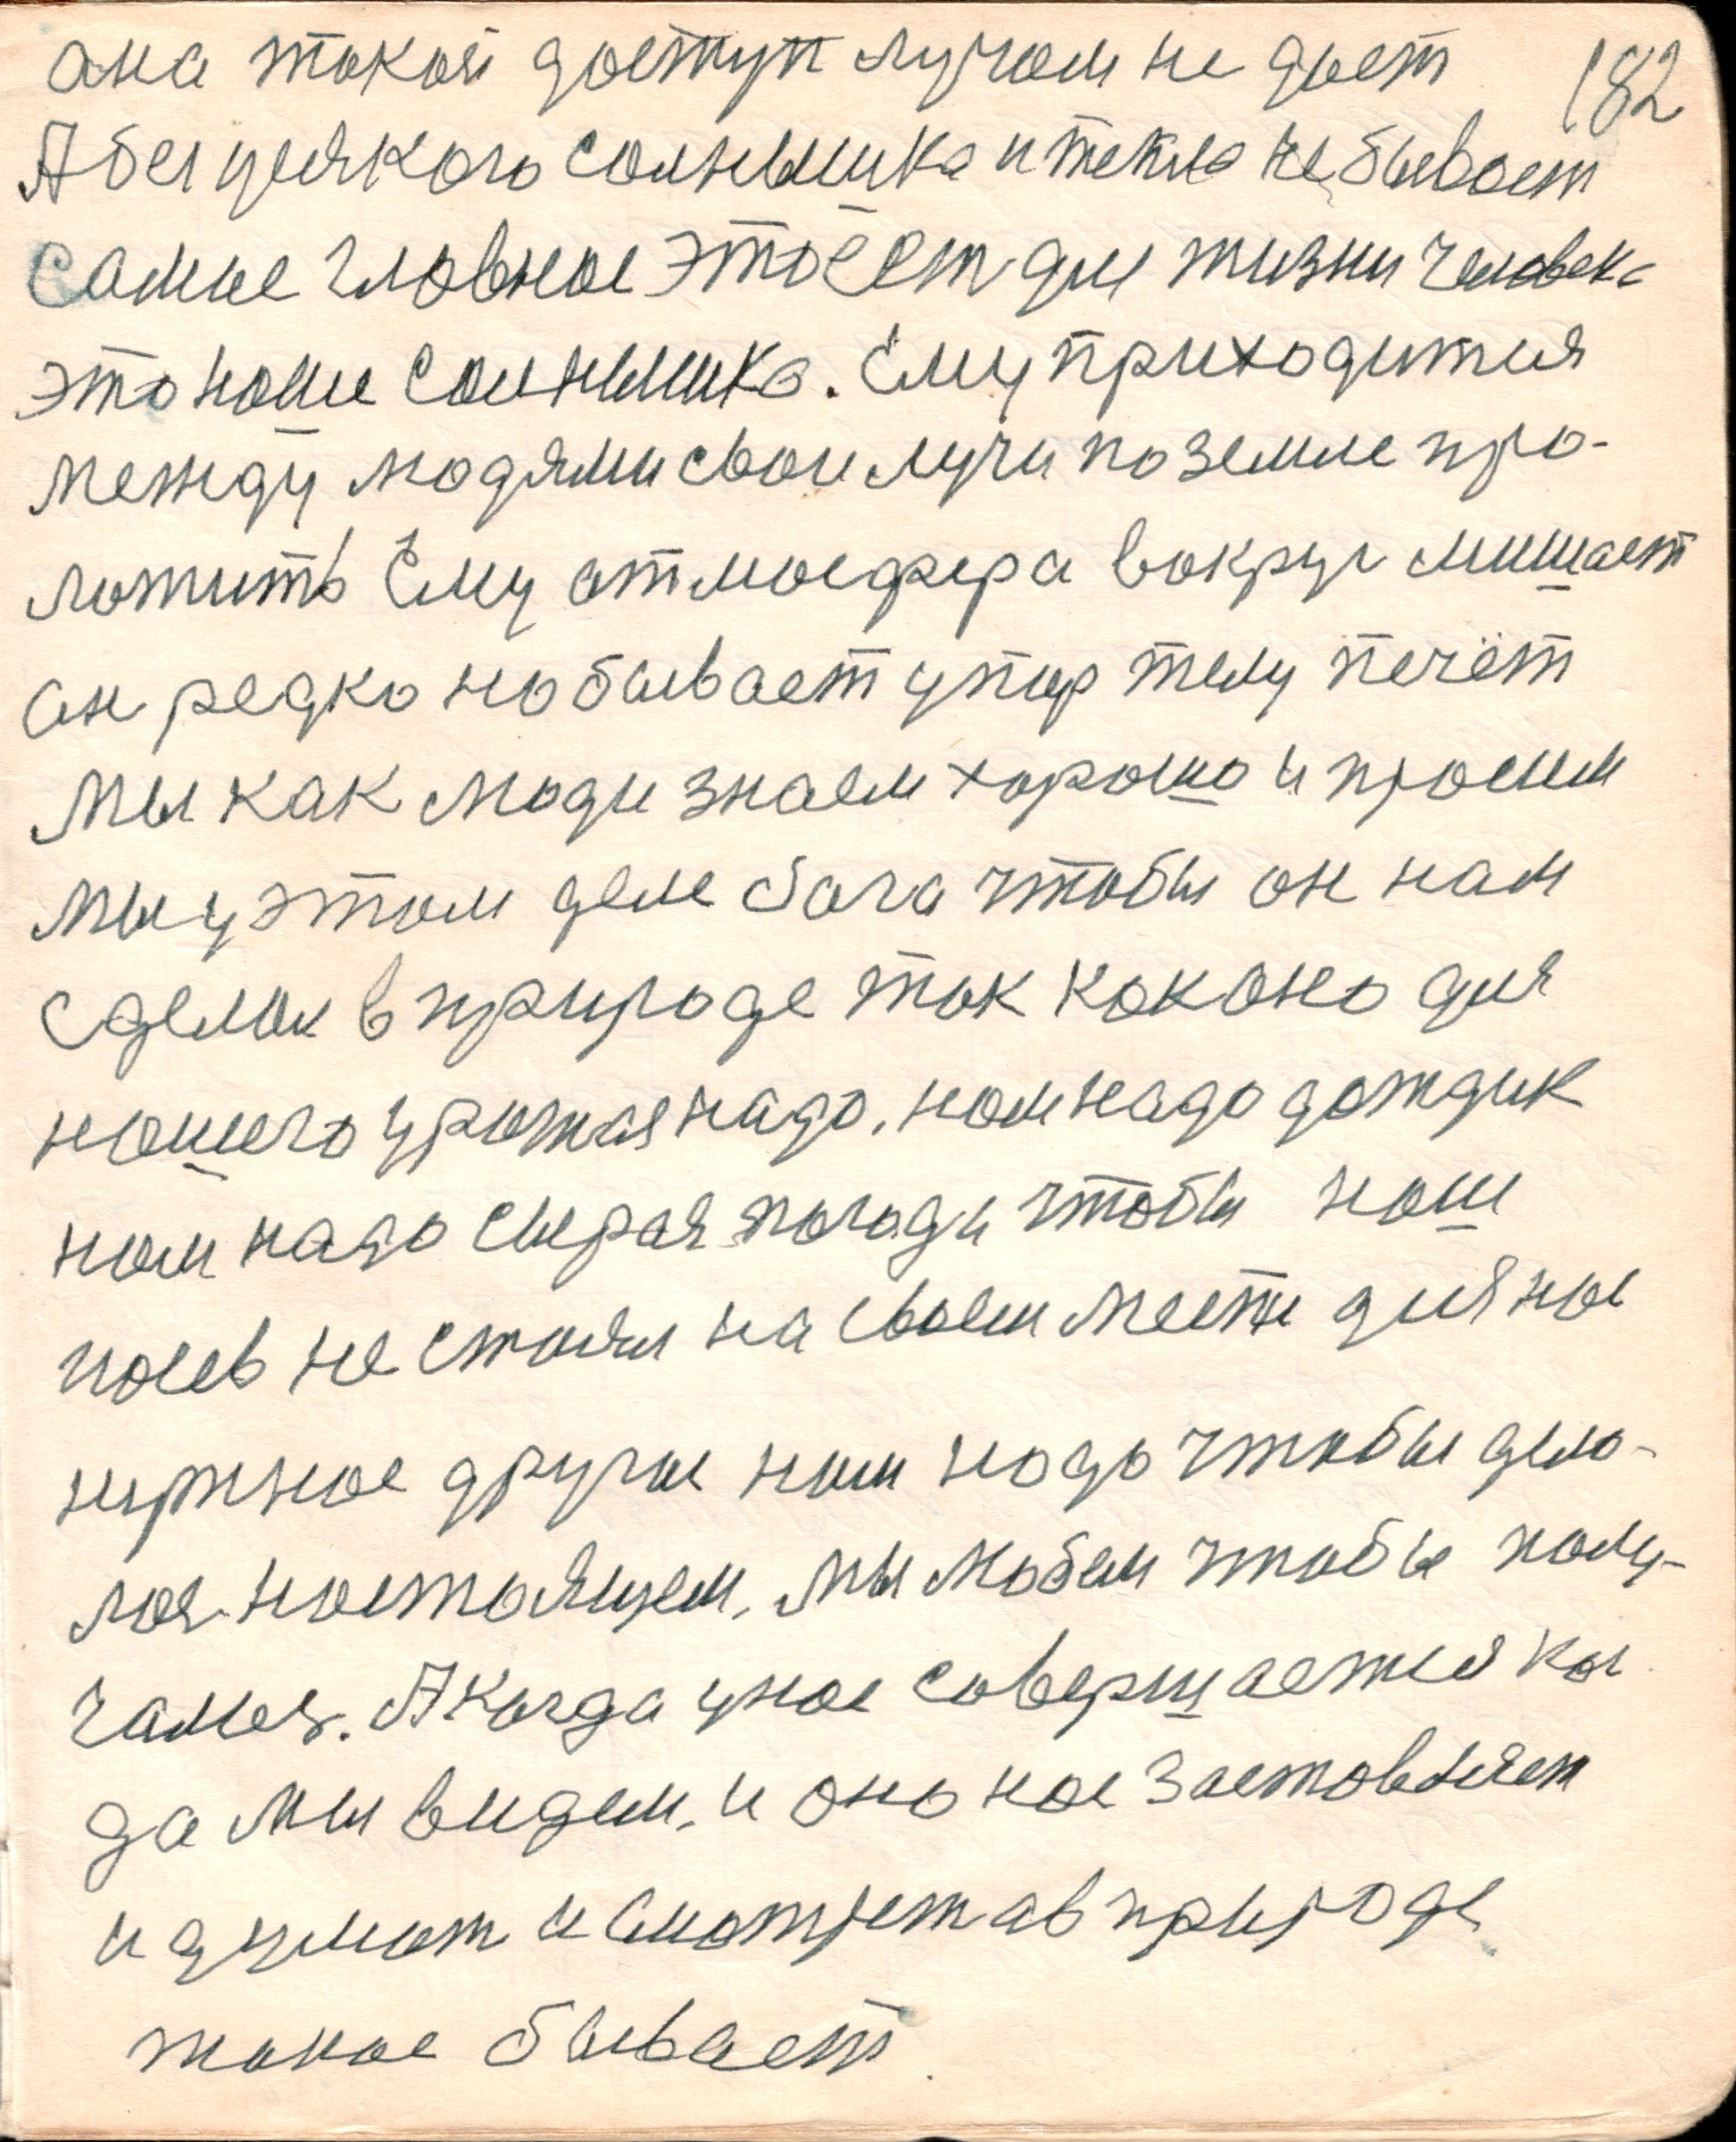 ана такой доступ лучам не дает 182
А без усякого солнышка и тепла не бывает
самые главное это есть для жизни человека
это наше солнышко. Ему приходится
между людями свои лучи по земле про-
ложить Ему атмосфера вокруг мишает
он редко но бывает упир телу печёт
мы как люди знаем хорошо и просим
мы у этом деле бога чтобы он нам
сделал в природе так как оно для
нашего урожая надо. нам надо дождик
нам надо сырая погода чтобы наш
посев не стоял на своем месте для нас
нужное другое нам надо чтобы дело-
лоя настоящем, мы любем чтобы полу-
чалися. А когда у нас совершается ког
да мы видем, и оно нас заставляет
и думат и смотрет а в природе
такое бывает.